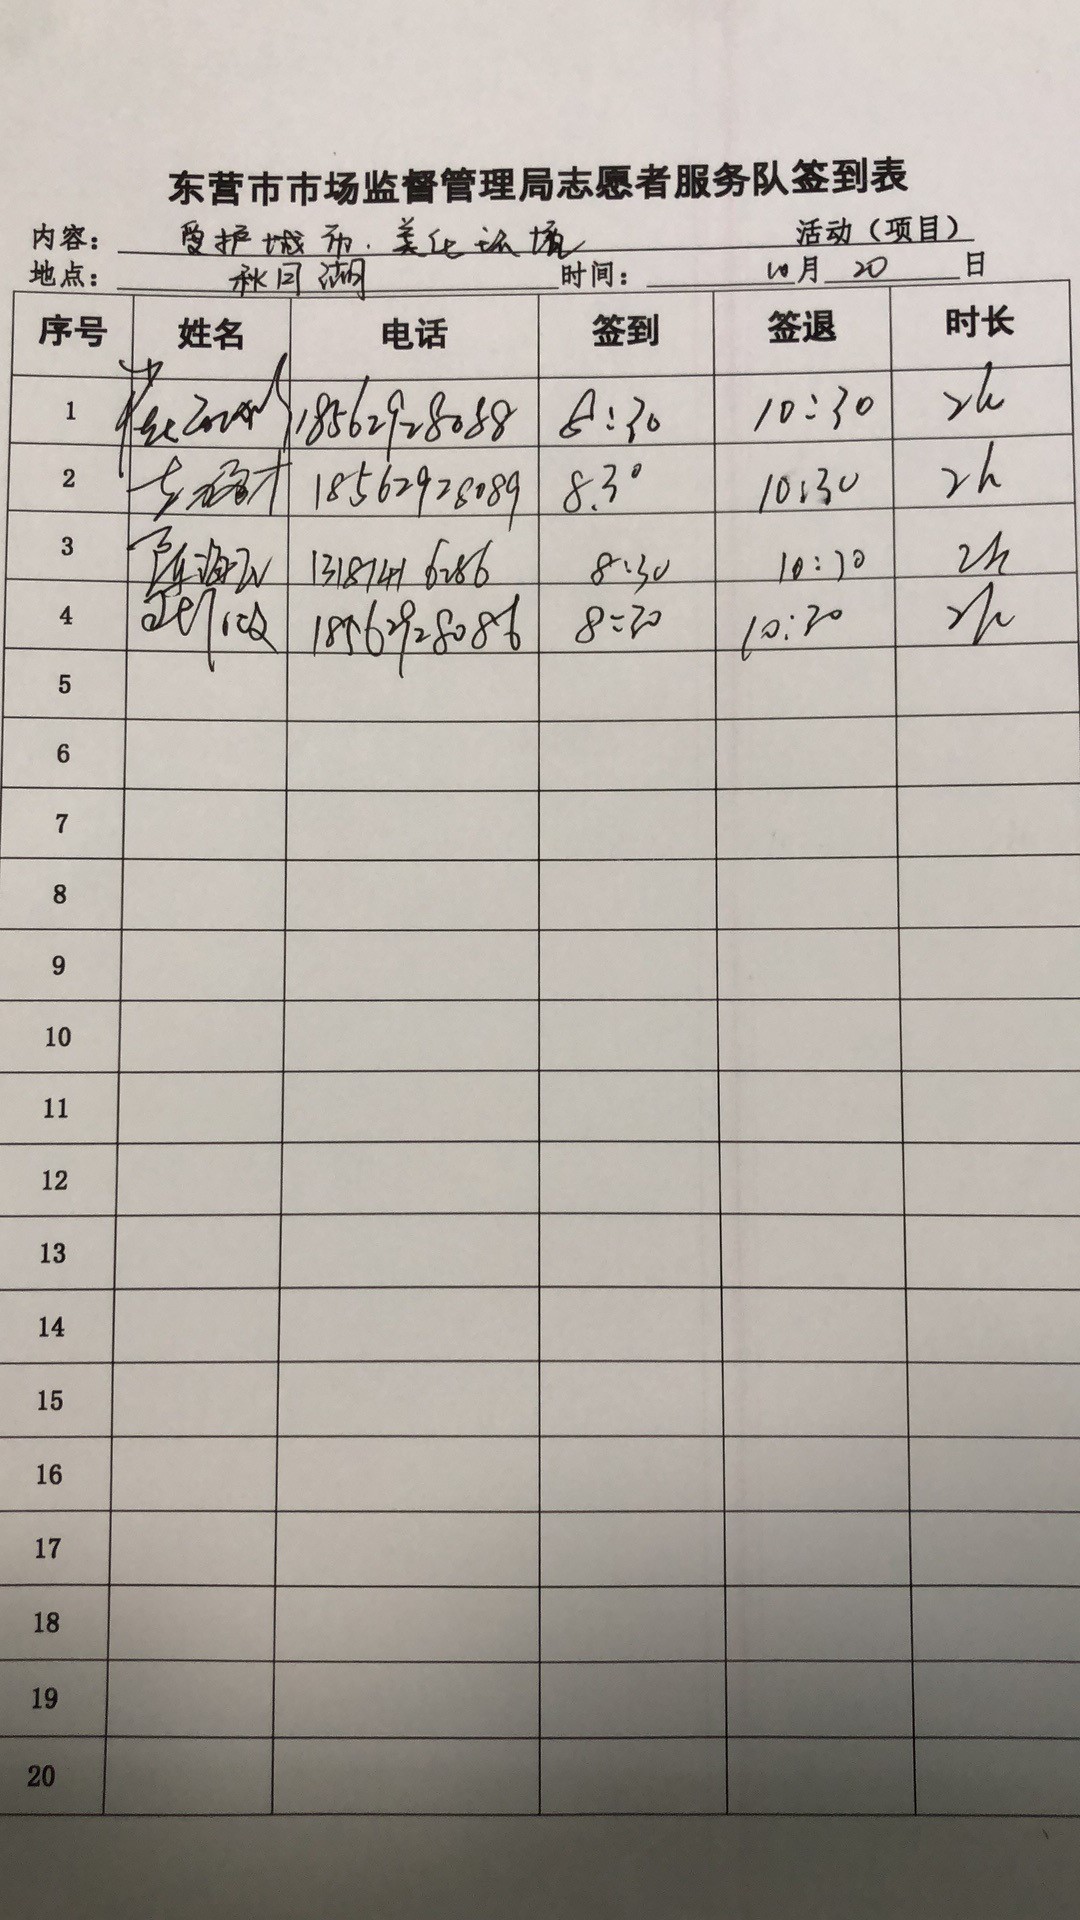 东营市市场监督管理局志愿者服务队签到表
内容：爱护城市.美化环境 活动（项目）
地点：秋月湖 时间：10月20日
序号 姓名 电话 签到 签退 时长
1 18562928088 8:30 10:30 2h
2 18562928089 8.30 10:30 2h
3 陈海弘 13187416286 8:30 10:30 2h
4 18562928086 8:30 10:30 2h
5
6
7
8
9
10
11
12
13
14
15
16
17
18
19
20